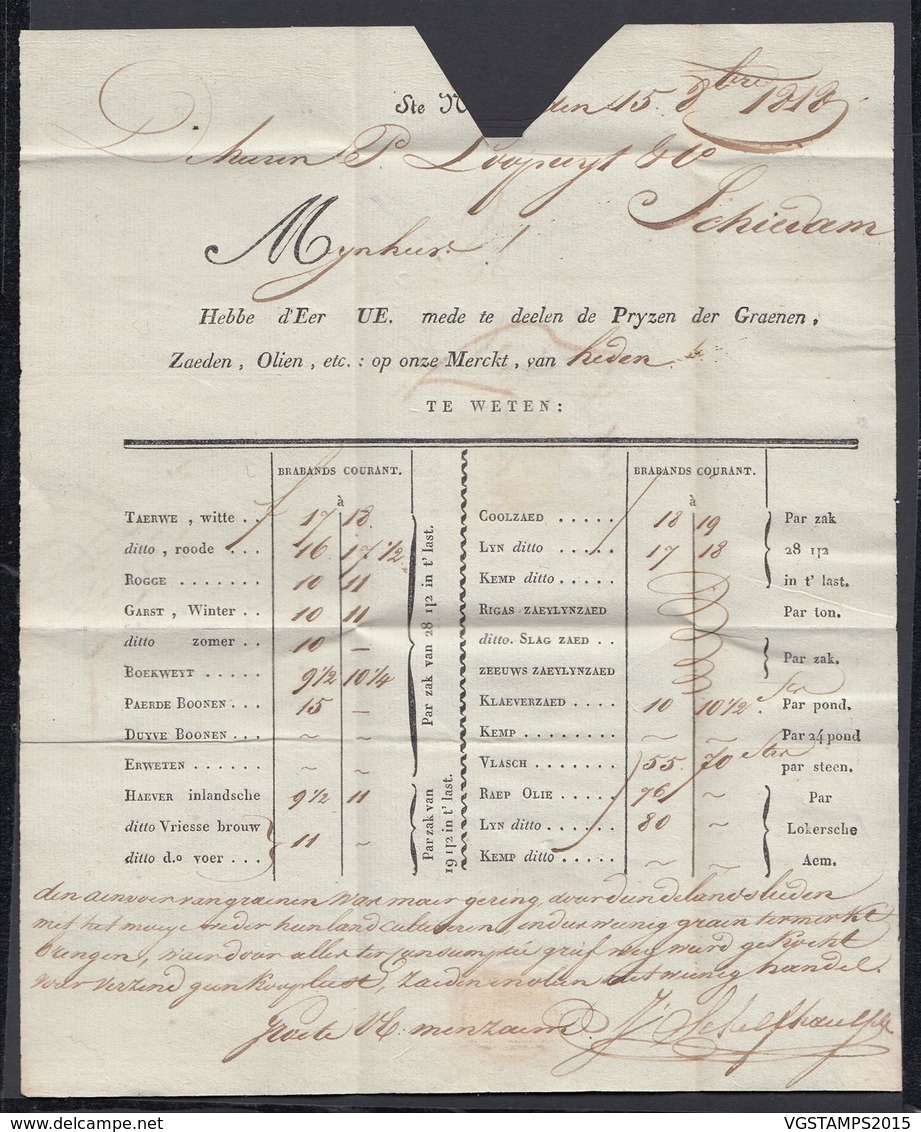 Ste N den 15 8bre 1818
De heeren P. Loopuyt & Co
Schiedam
Mynheer !
Hebbe d'Eer UE. mede te deelen de Pryzen der Graenen,
Zaeden, Olien, etc.: op onze Merckt, van heden
TE WETEN:
BRABANDS COURANT.
à
TAERWE, witte . . 17 18
ditto, roode . . . 16 17 1/2
ROGGE . . . . . . . 10 11
GARST, Winter . . 10 11
ditto zomer . . 10 —
BOEKWEYT . . . . . 9 1/2 10 1/4
PAERDE BOONEN . . . 15 —
DUYVE BOONEN . . . ~ ~
ERWETEN . . . . . . ~ ~
Par zak van 28 1|2 in t' last.
HAEVER inlandsche 9 1/2 11
ditto Vriesse brouw
ditto d.o voer . . . 11 —
Par zak van
19 1|2 in t' last.
BRABANDS COURANT.
à
COOLZAED . . . . . 18 19 Par zak
LYN ditto . . . . . 17 18 28 1|2
KEMP ditto . . . . . in t' last.
RIGAS ZAEYLYNZAED Par ton.
ditto. SLAG ZAED . .
ZEEUWS ZAEYLYNZAED Par zak.
KLAEVERZAED 10 10 1/2 Par pond.
KEMP . . . . . . . . ~ ~ Par 24 pond
VLASCH . . . . . . . 55 70 par steen.
RAEP OLIE . . . . . 76 ~ Par
LYN ditto . . . . . 80 ~ Lokersche
KEMP ditto . . . . . ~ ~ Aem.
den aenvoer van graenen was maer gering, doordien de landslieden
met het moeye weder hun land cultiveren, en dus weinig graen ter merkt
brengen, waer door alles ter consumptie grif weg werd gekocht
voor verzend geen kooplust, zaeden en olien met weinig handel.
groete UE. minzaem J. Schelfhaut
VGSTAMPS2015